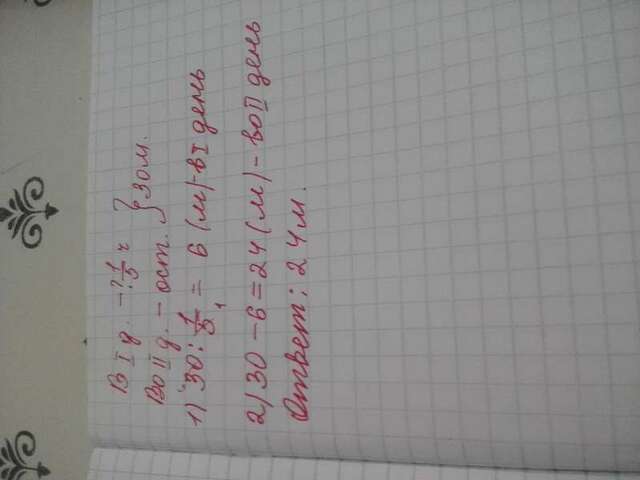 В I д. – ? 1/5 ч } 30 м.
Во II д. – ост.
1) 30 : 1/5 = 6 (м) – в I день
2) 30 – 6 = 24 (м) – во II день
Ответ: 24 м.